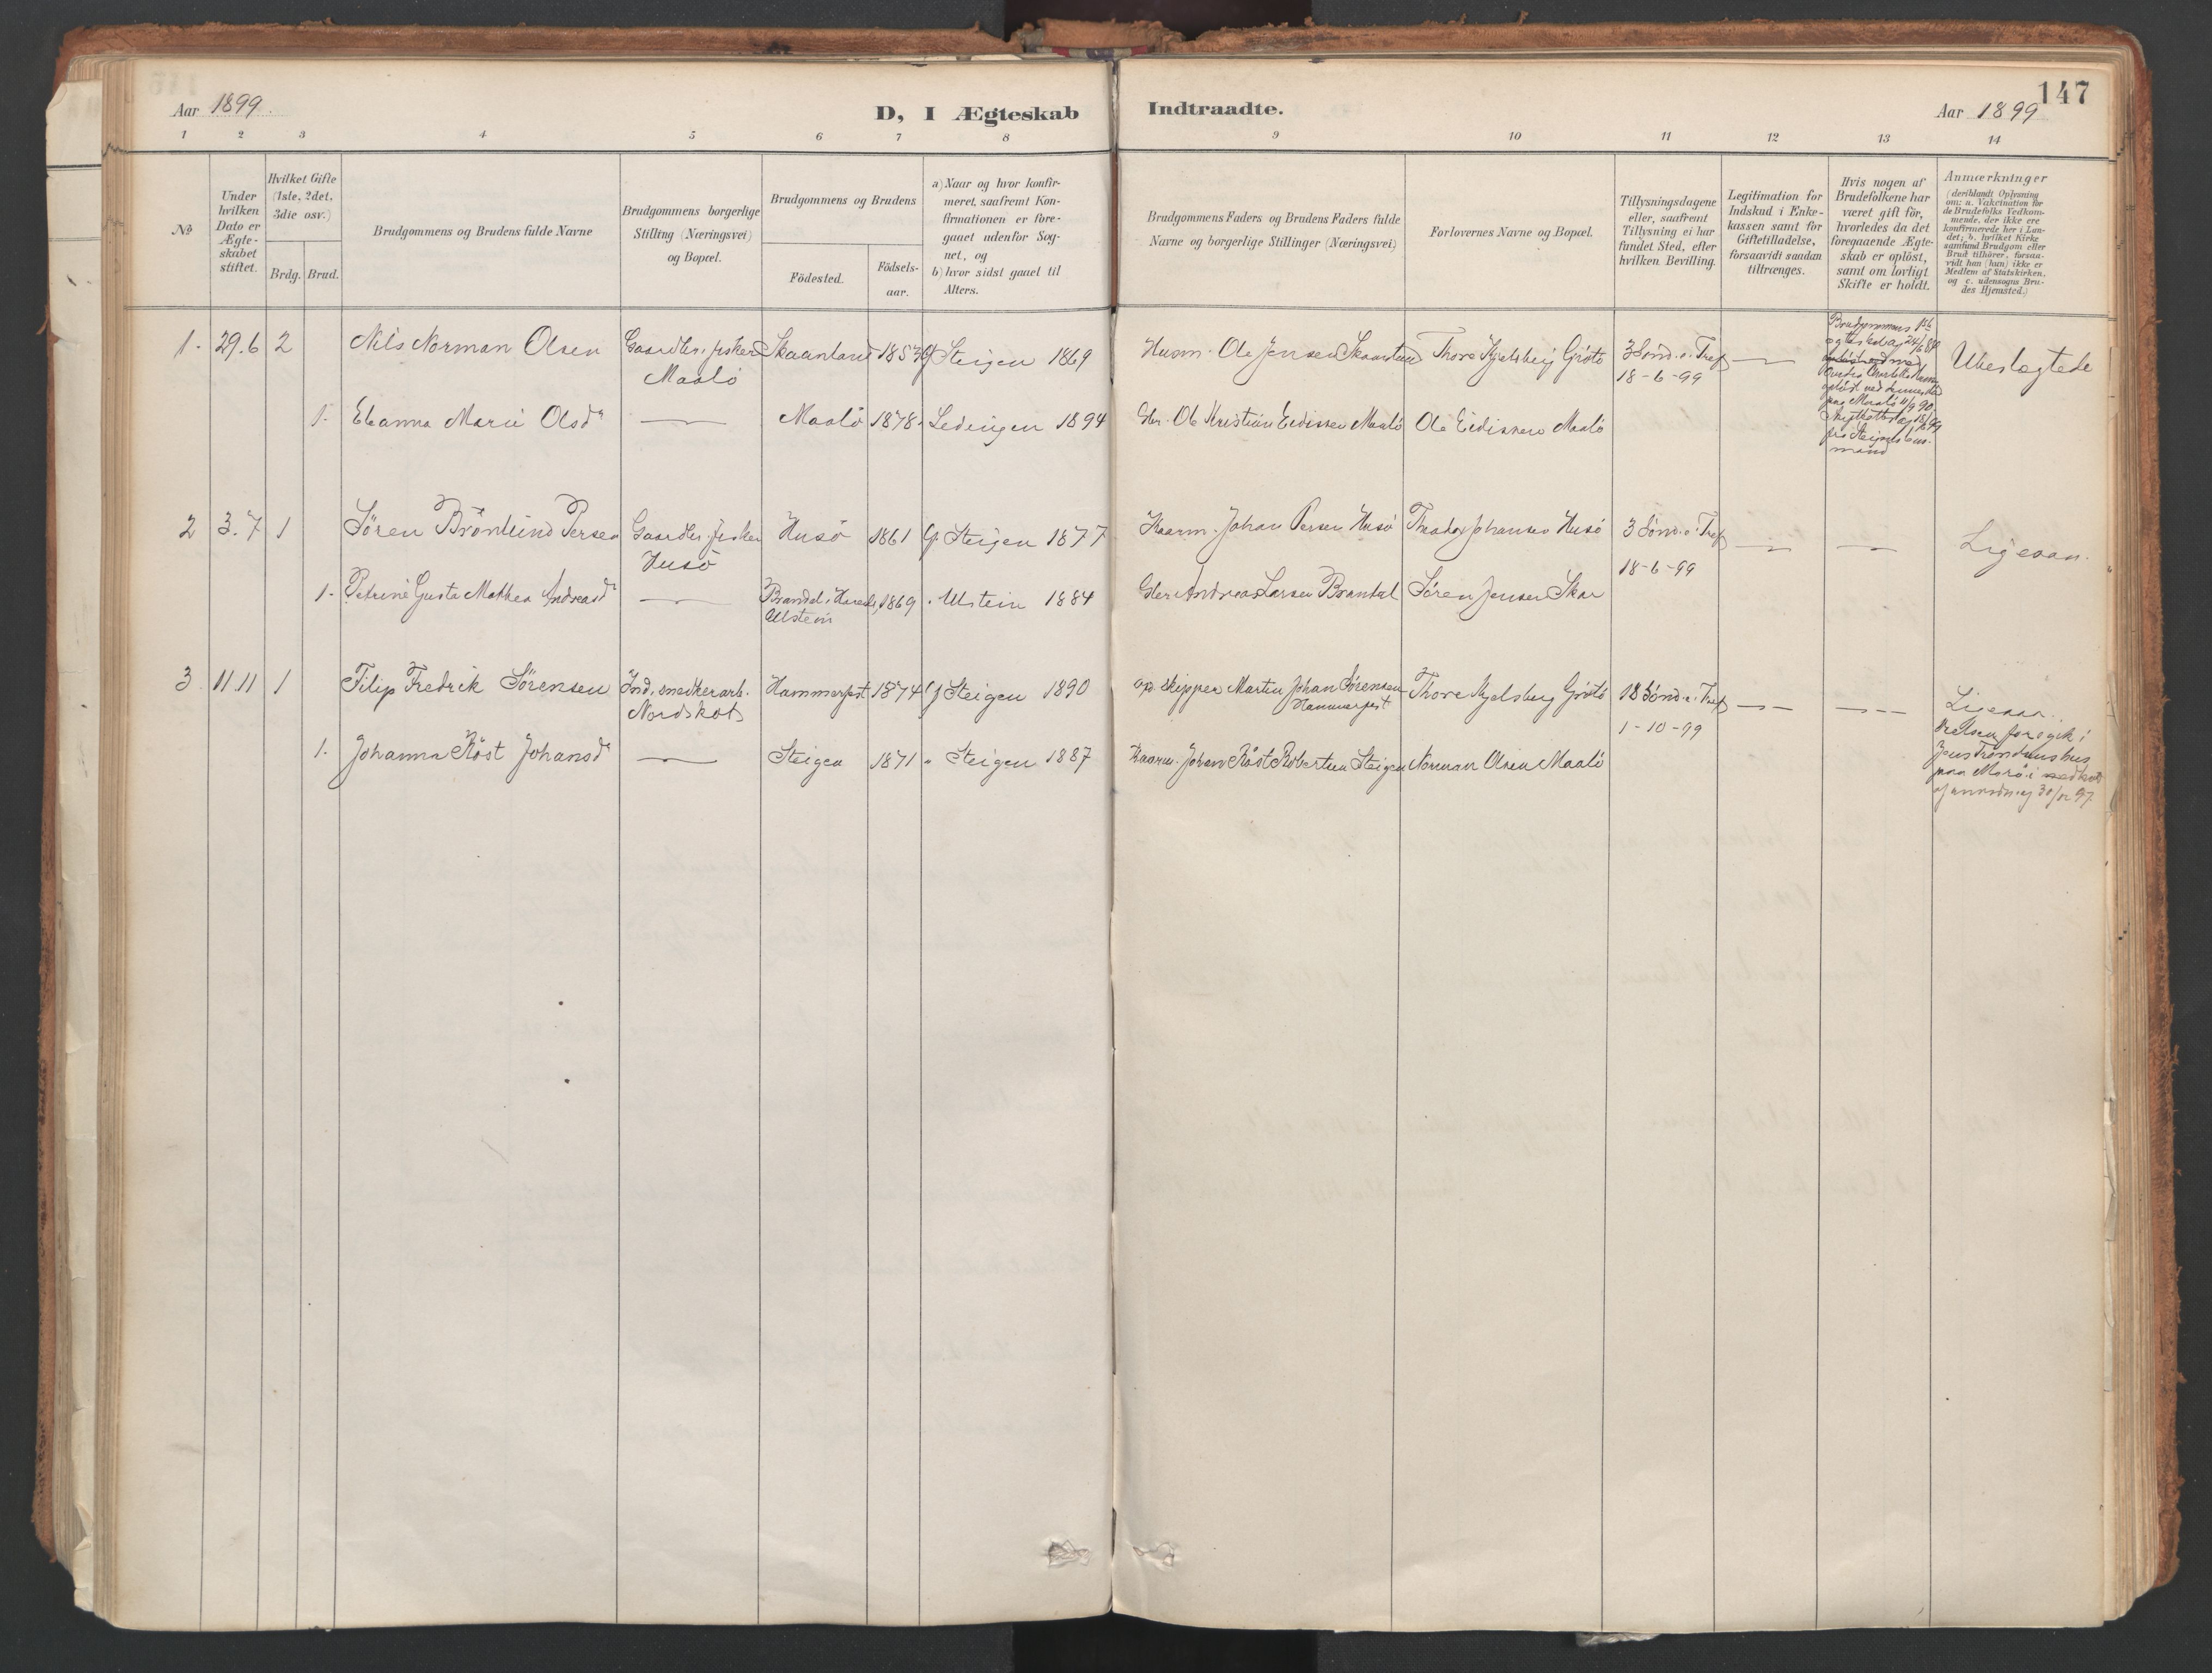 147
Aar 1899.
D, I Ægteskab
Indtraadte.
Aar 1899
1 2 3 4 5 6 7 8
9 10 11 12 13 14
№
Under hvilken Dato er Ægte-skabet stiftet.
Hvilket Gifte (1ste, 2det, 3die osv.)
Brdg. Brud.
Brudgommens og Brudens fulde Navne
Brudgommens borgerlige Stilling (Næringsvei) og Bopæl.
Brudgommens og Brudens
Födested.
Födsels-aar.
a) Naar og hvor konfir-
meret, saafremt Kon-
firmationen er fore-
gaaet udenfor Sog-
net, og
b) hvor sidst gaaet til
Alters.
Brudgommens Faders og Brudens Faders fulde
Navne og borgerlige Stillinger (Næringsvei)
Forlovernes Navne og Bopæl.
Tillysningsdagene
eller, saafremt
Tillysning ei har
fundet Sted, efter
hvilken Bevilling.
Legitimation for
Indskud i Enke-
kassen samt for
Giftetilladelse,
forsaavidt saadan
tiltrænges.
Hvis nogen af
Brudefolkene har
været gift för,
hvorledes da det
foregaaende Ægte-
skab er oplöst,
samt om lovligt
Skifte er holdt.
Anmærkninger
(deriblandt Oplysning
om: a. Vakcination for
de Brudefolks Vedkom-
mende, der ikke ere
konfirmerede her i Lan-
det; b. hvilket Kirke
samfund Brudgom eller
Brud tilhörer, forsaa-
vidt han (hun) ikke er
Medlem af Statskirken.
og c. udensogns Bru-
des Hjemsted.)
1. 29.6 2 Nils Norman Olsen Gaardbr. fisker Skaanland 1853 Steigen 1869 Husm. Ole Jensen Skaanland Thore Kjelsberg Grötö 3 Sönd. e. Tref
Maalö 18-6-99 Ubeslægtede
1. Marie Olsd Maalö 1878 Lödingen 1894 Gbr. Ole Kristian Eidissen Maalö Ole Eidissen Maalö
Brudgommens 1ste
paa Maalö 11/9 90
mand
2 3.7 1 Sören Brönlund Persen Gaardbr. fisker Husö 1861 Steigen 1877 Kaarm. Johan Persen Husö Johansen Husö 3 Sönd. e. Tref
Husö 18-6-99 Ligesaa.
1. Petrine Gusta Mathea Andreasd Brandal i Hareids, 1869 Ulstein 1884 Gbr. Andreas Larsen Brandal Sören Jensen Skar
Ulstein
3. 11.11 1 Filip Fredrik Sörensen Ind. snedkerarb. Hammerfest 1874 Steigen 1890 Skipper Martin Johan Sörensen Thore Kjelsberg Grötö 18 Sönd. e. Tref
Nordskot Hammerfest 1-10-99 Ligesaa.
1. Johanna Röst Johansd Steigen 1871 Steigen 1887 Kaarm. Johan Röst Robertsen Steigen Norman Olsen Maalö
Vielsen foregik i
Jens Tröndsens hus
paa